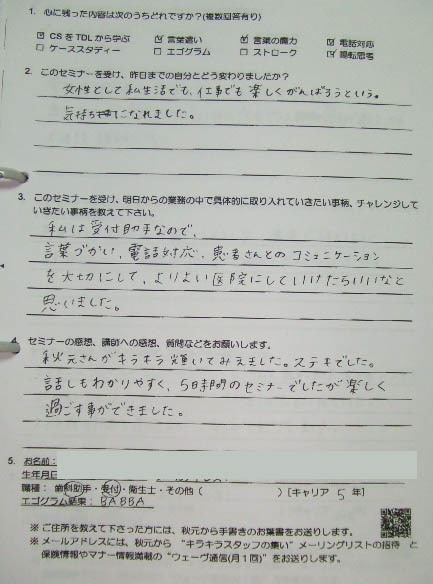 1. 心に残った内容は次のうちどれですか?(複数回答有り)
☑ CSをTDLから学ぶ ☑ 言葉遣い ☑ 言葉の魔力 ☑ 電話対応
□ ケーススタディー □ エゴグラム □ ストローク ☑ 陽転思考
2. このセミナーを受け、昨日までの自分とどう変わりましたか?
女性として私生活でも、仕事でも楽しくがんばろうという。
気持ちになれました。
3. このセミナーを受け、明日からの業務の中で具体的に取り入れていきたい事柄、チャレンジして
いきたい事柄を教えて下さい。
私は受付助手なので、
言葉づかい、電話対応、患者さんとのコミュニケーション
を大切にして、よりよい医院にしていけたらいいなと
思いました。
4. セミナーの感想、講師への感想、質問などをお願いします。
秋元さんがキラキラ輝いてみえました。ステキでした。
話しもわかりやすく、5時間のセミナーでしたが楽しく
過ごす事ができました。
5. お名前:
生年月日
職種: 歯科助手・受付・衛生士・その他( )[キャリア 5 年]
エゴグラム結果: BABBA
※ ご住所を教えて下さった方には、秋元から手書きのお葉書をお送りします。
※ メールアドレスには、秋元から "キラキラスタッフの集い" メーリングリストの招待 と
保険情報やマナー情報満載の "ウェーヴ通信(月1回)" をお送りします。